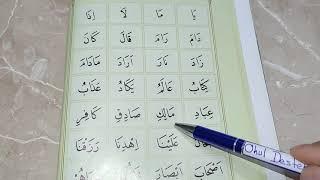 يَا مَا لَهُ اِذَا
دَامَ رَامَ قَالَ كَانَ
زَادَ نَارَ اَرَادَ مَادَامَ
كِتَابُ عَالَمُ يَكَادُ عَذَابُ
عِبَادِ مَالِكِ صَادِقِ كَافِرِ
عَلَيْنَا اِهْدِنَا رَزَقْنَا
اَصْحَابَ اَبْصَارَ
Okul Deste